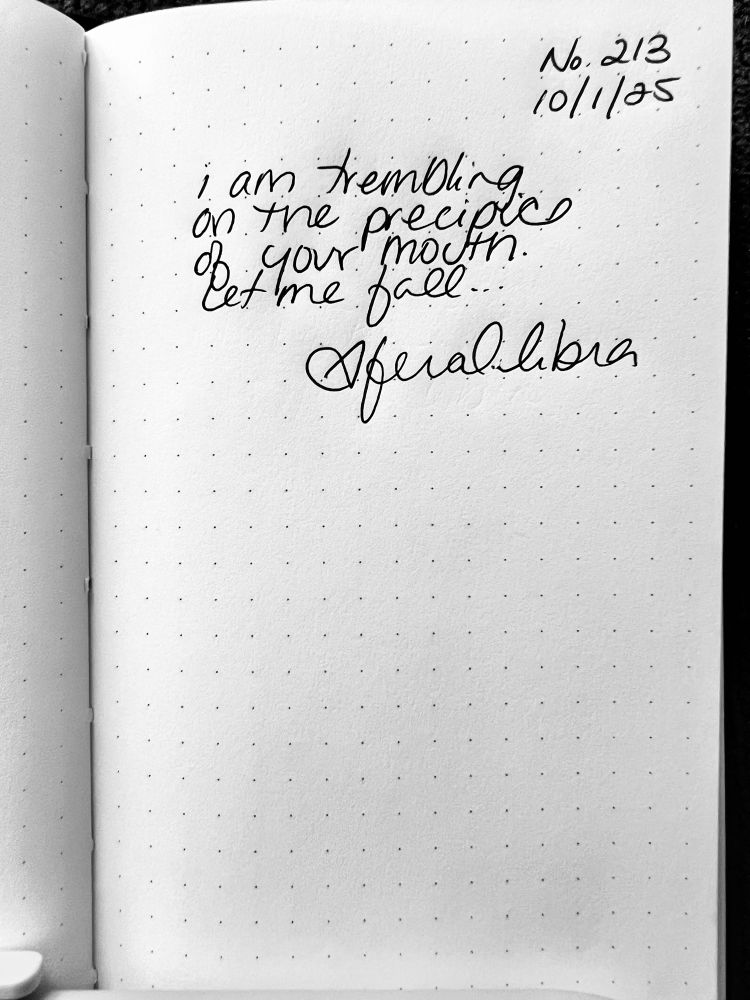 No. 213
10/1/25
i am trembling
on the precipice
of your mouth.
Let me fall...
♡feral.libra